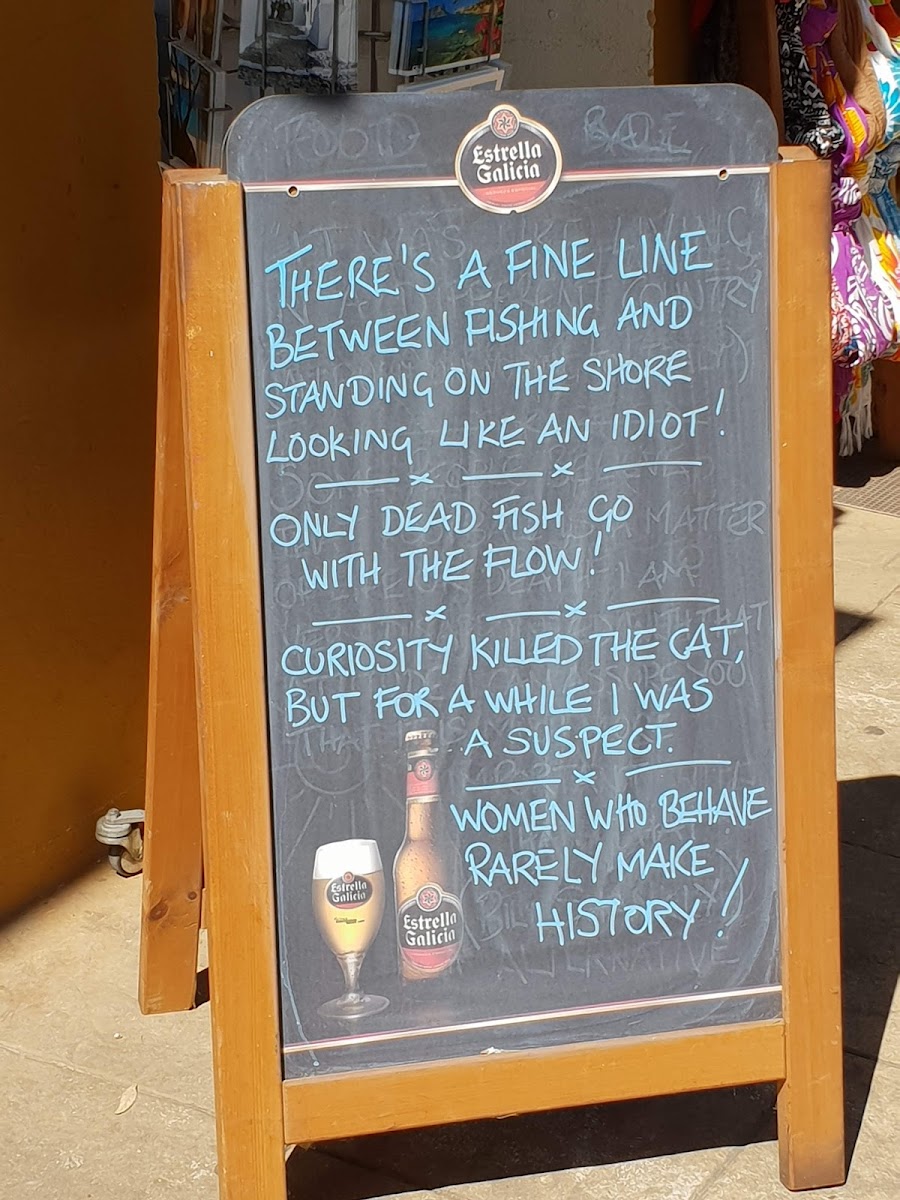 Estrella
Galicia
THERE'S A FINE LINE
BETWEEN FISHING AND
STANDING ON THE SHORE
LOOKING LIKE AN IDIOT!
ONLY DEAD FISH GO
WITH THE FLOW!
CURIOSITY KILLED THE CAT,
BUT FOR A WHILE I WAS
A SUSPECT.
WOMEN WHO BEHAVE
RARELY MAKE
HISTORY!
Estrella
Galicia
Estrella
Galicia